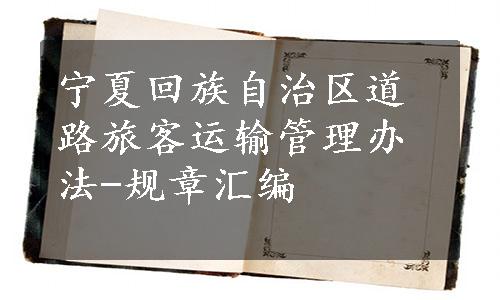 宁夏回族自治区道
路旅客运输管理办
法-规章汇编